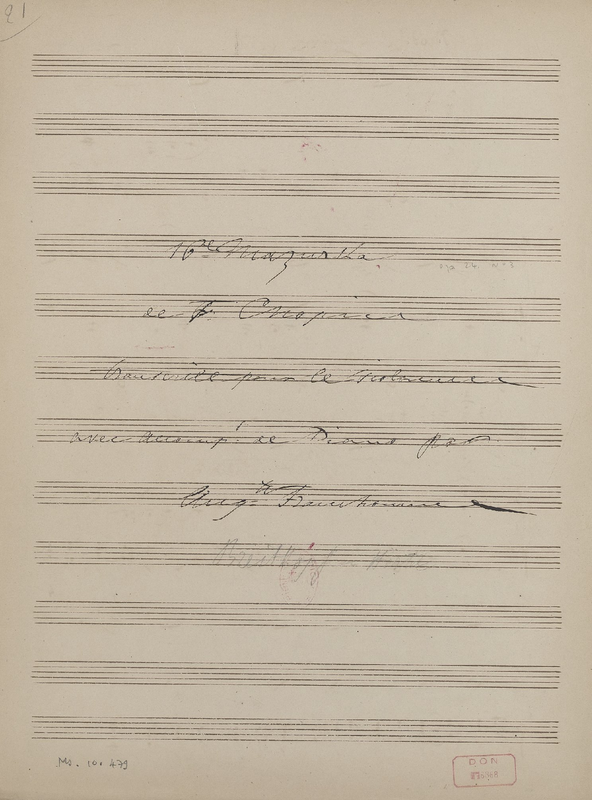 21
16e Mazurka
op 24. no 3
de Fr. Chopin
transcrite pour le violoncelle
avec accomp.t de Piano par
Aug.te Franchomme
Breitkopf Härtel
Ms. 10.479
DON